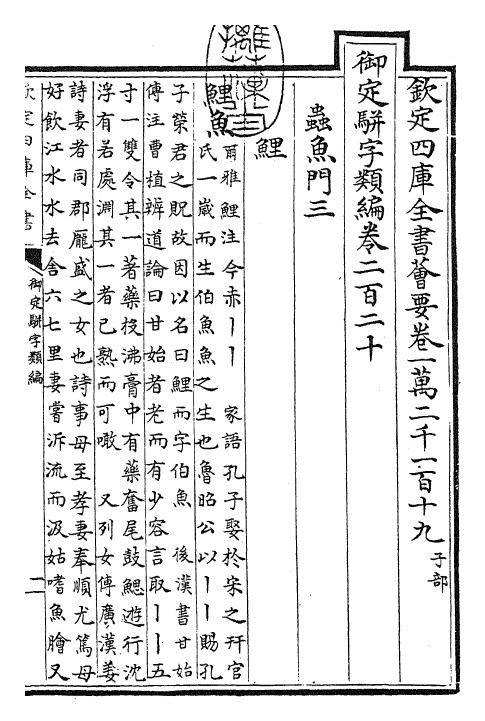 欽定四庫全書薈要卷一萬二千一百十九 子部
御定駢字類編卷二百二十
蟲魚門三
鯉
鯉魚 爾雅鯉注今赤丨丨 家語孔子娶於宋之幵官
氏一歲而生伯魚魚之生也魯昭公以丨丨賜孔
子榮君之貺故因以名曰鯉而字伯魚 後漢書甘始
傳注曹植辨道論曰甘始者老而有少容言取丨丨五
寸一雙令其一著藥投沸膏中有藥奮尾鼓鰓遊行沈
浮有若處淵其一者已熟而可噉 又列女傳廣漢姜
詩妻者同郡龐盛之女也詩事母至孝妻奉順尤篤母
好飲江水水去舍六七里妻嘗泝流而汲姑嗜魚膾又
欽定四庫全書
御定駢字類編